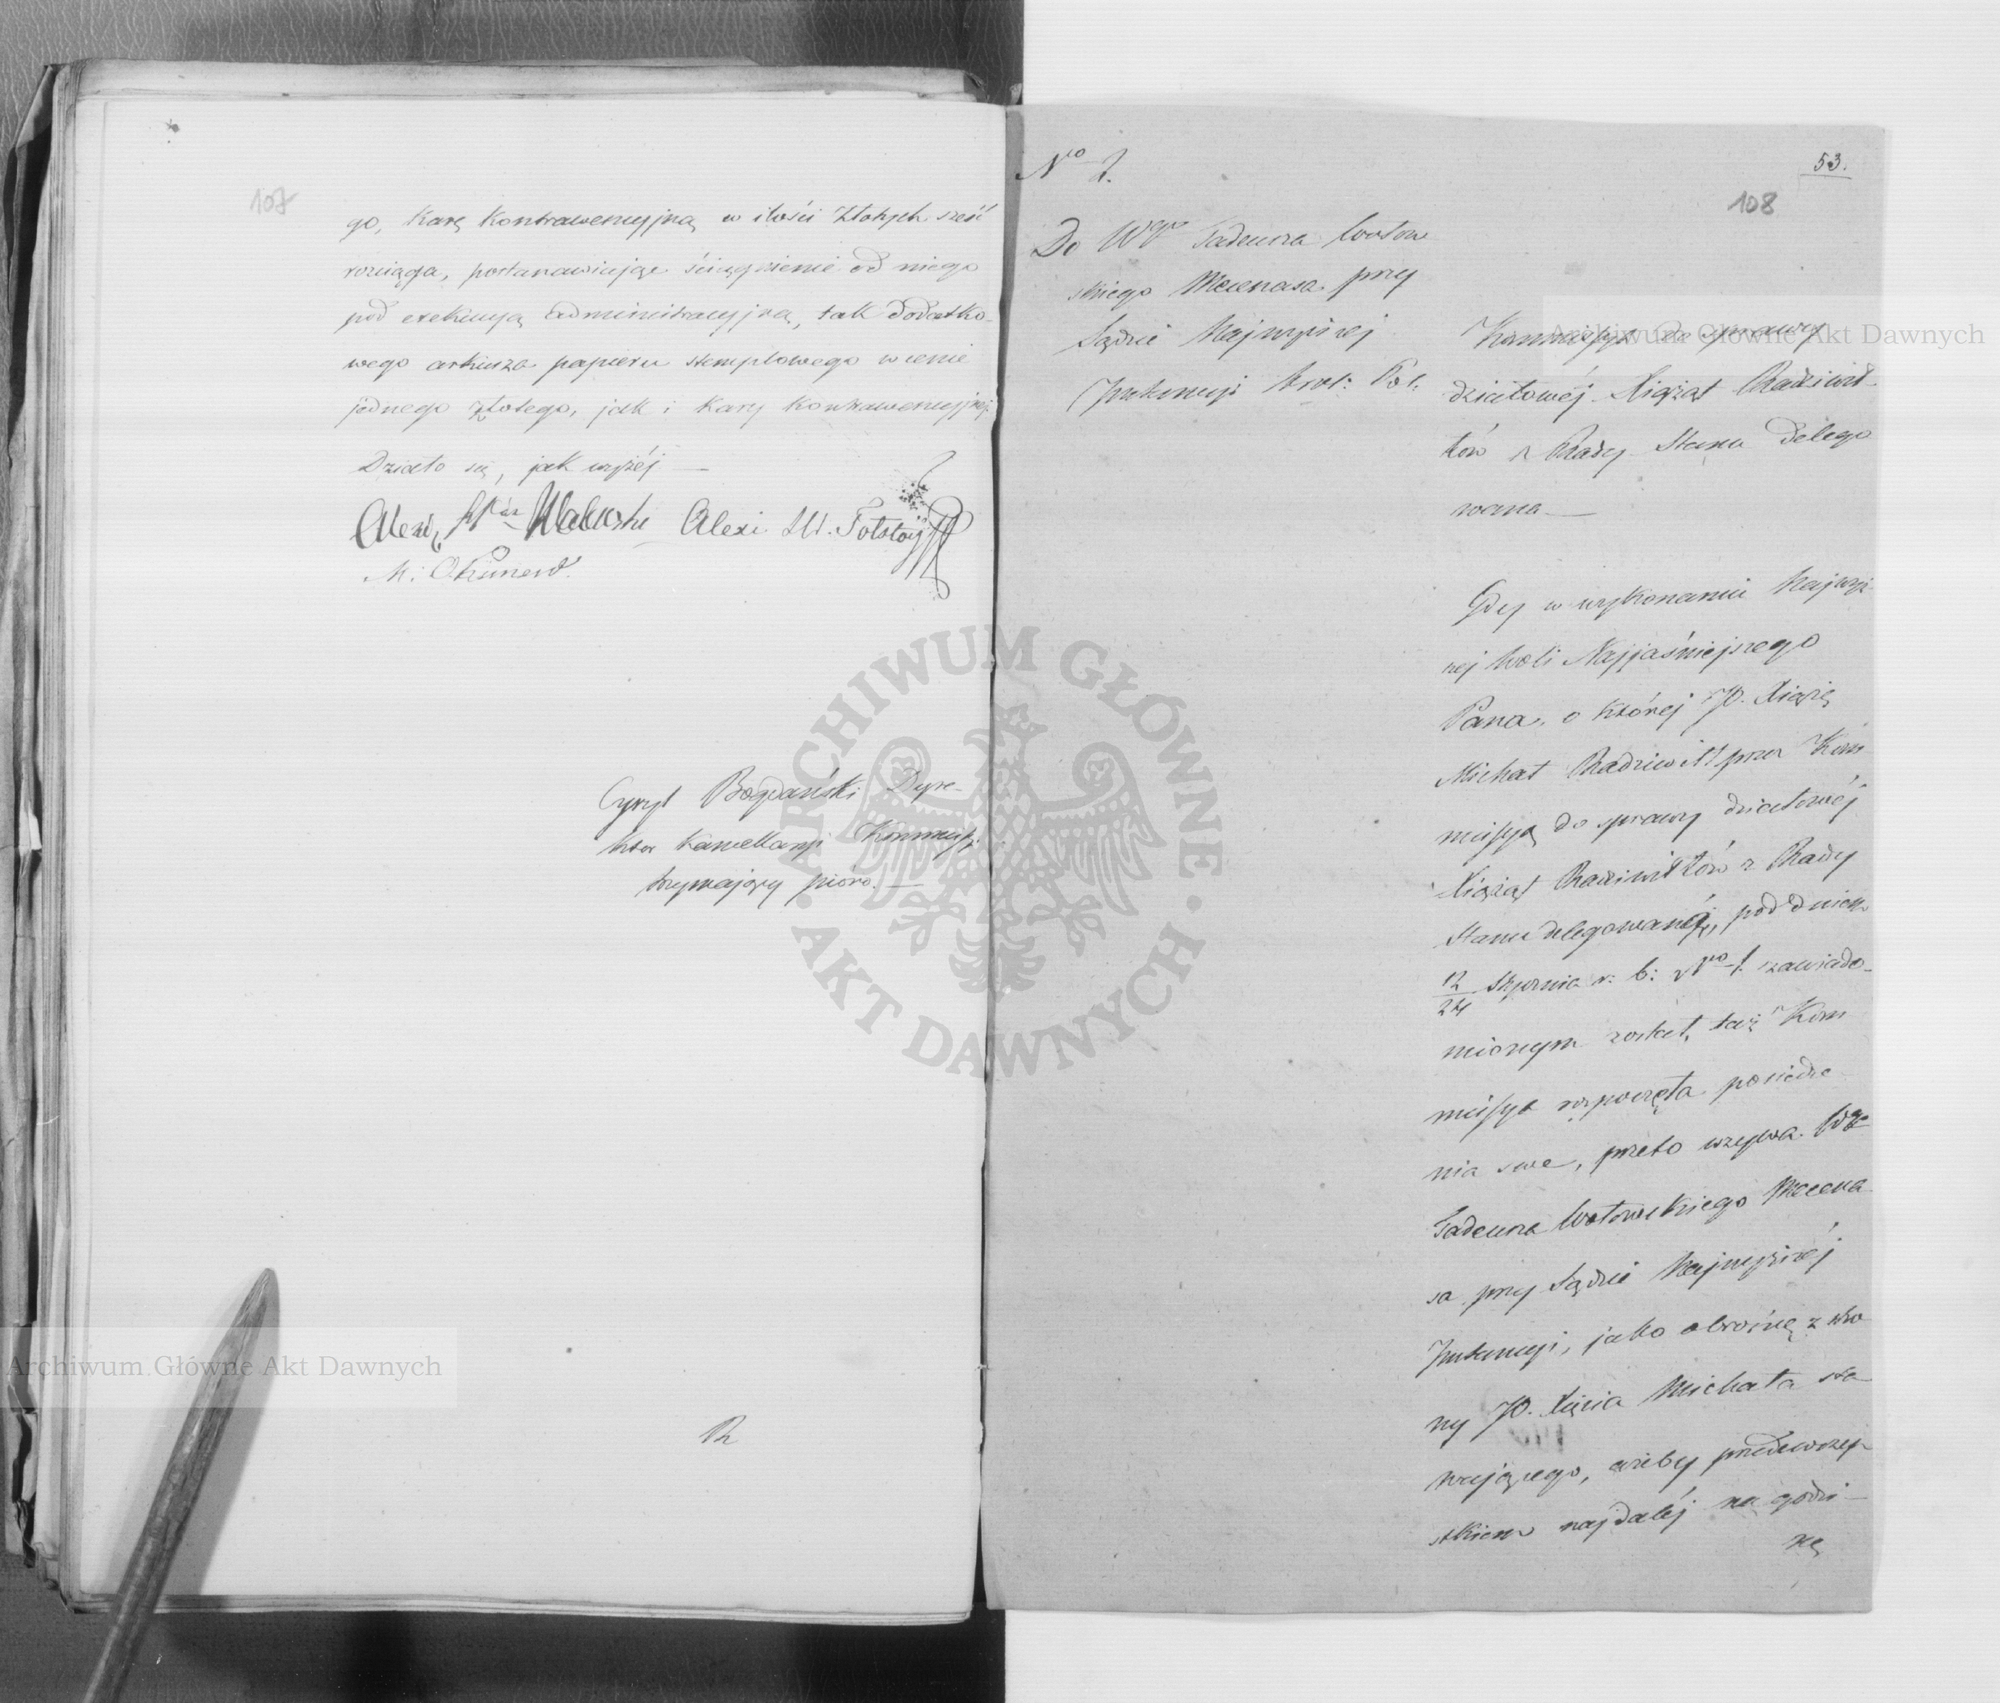 107
go, karę kontrawencyjną w ilości Złotych sześć
rozciąga, postanawiając ściągnienie od niego
pod exekucyą administracyjną, tak dodatko-
wego arkusza papieru stemplowego w cenie
jednego złotego, jak i kary kontrawencyjnej.
Działo się, jak wyżéj —
Alexi Tołstoy
M: Okuniew.
Cyryl Bogdański Dyre-
ktor Kancellaryi Kommissyi
trzymający pióro. —
N
53.
108
Do Wgo Tadeusza Wołow
skiego Mecenasa przy
Sądzie Najwyższej
Instancyi Król: Pol:
Kommissya do sprawy
działowéj Xiążąt Radziwił-
łów z Rady Stanu delego
wana —
Gdy w wykonaniu Najwyż-
szej Woli Najjaśniejszego
Pana, o której JO. Xiążę
Michał Radziwiłł przez Kom-
missyą do sprawy działowéj
Xiążąt Radziwiłłów z Rady
Stanu delegowaną, pod dniem
12/24 Stycznia r: b: Nro 1. zawiado-
mionym został, taż Kom
missya rozpoczęła posiedze-
nia swe, przeto wzywa Wgo
Tadeusza Wołowskiego Mecena-
sa przy Sądzie Najwyższéj
Instancyi, jako obrońcę z stro
ny JO. Xięcia Michała sta-
wającego, ażeby przedewszy-
stkiem najdaléj na godzi-
nę
ARCHIWUM GŁÓWNE AKT DAWNYCH
Archiwum Główne Akt Dawnych
Archiwum Główne Akt Dawnych